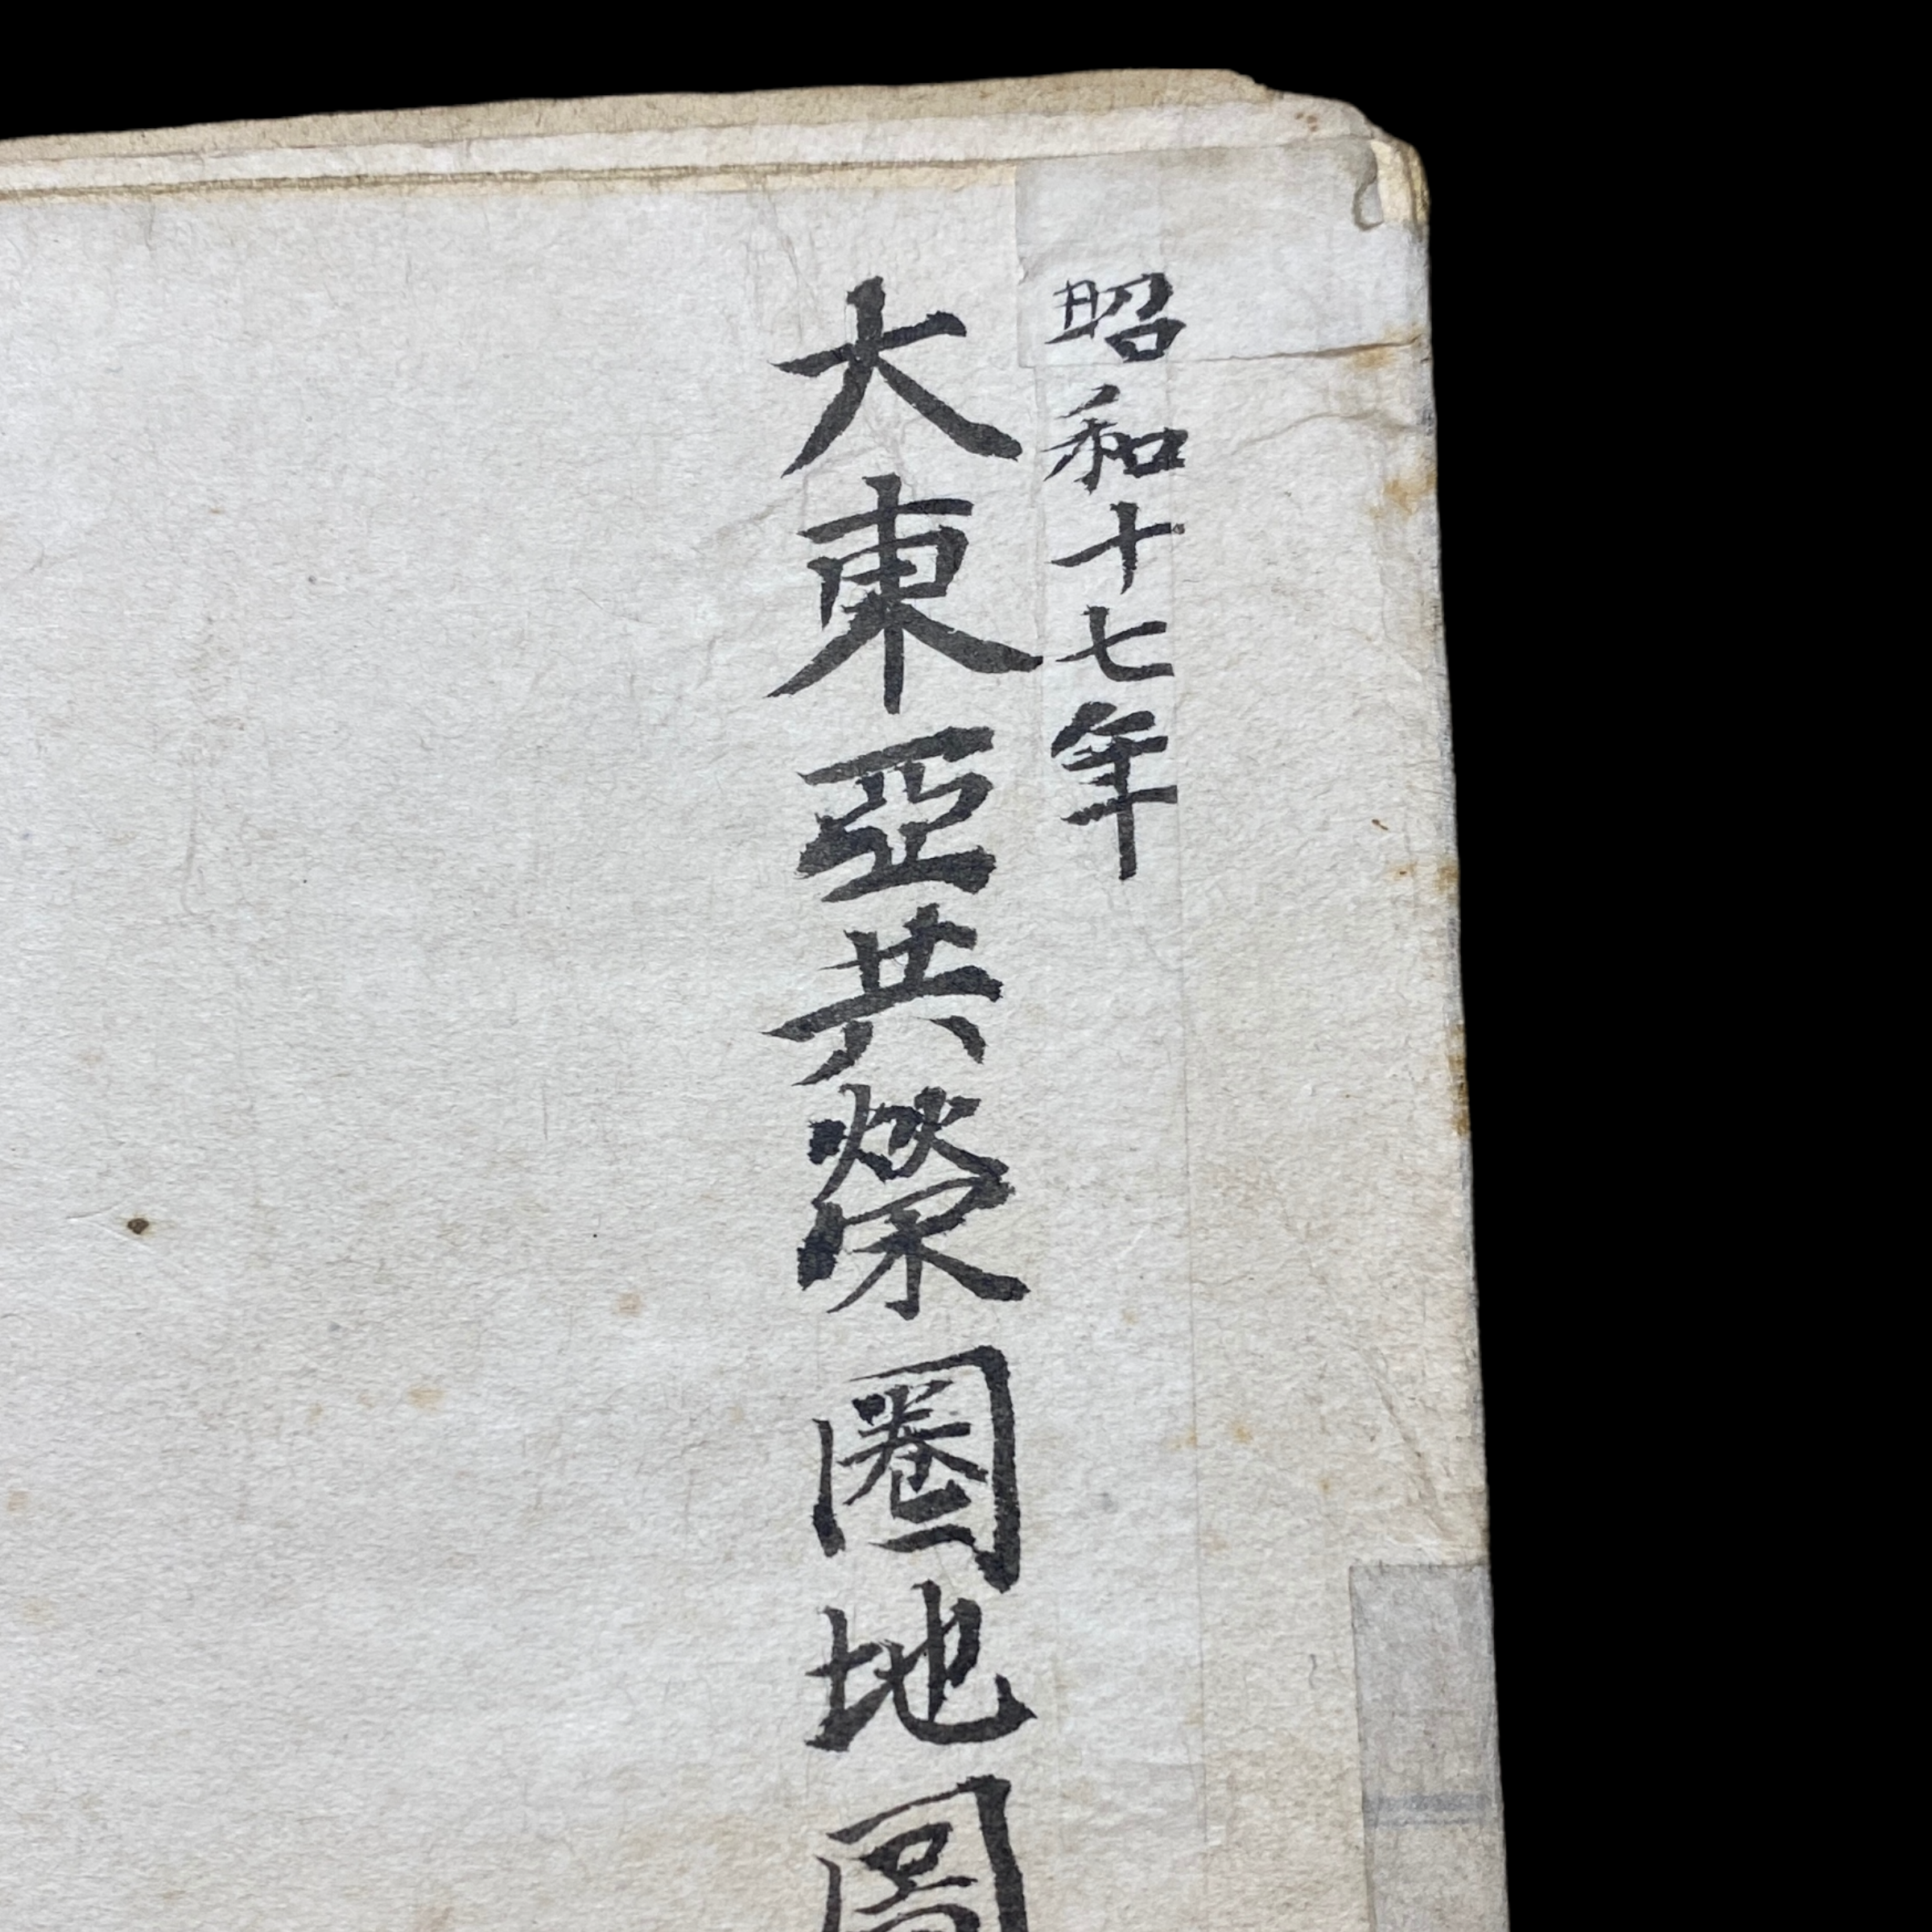 昭和十七年
大東亞共榮圈地圖